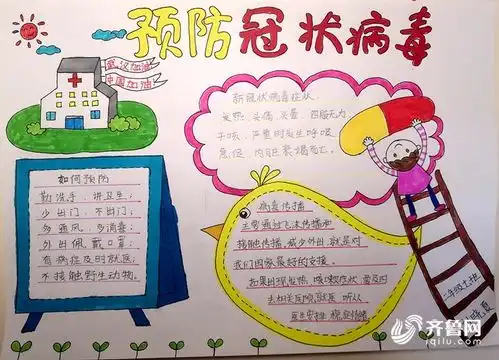 预防冠状病毒
武汉加油
中国加油
新冠状病毒症状,
发热、头痛、头晕、四肢无力、
干咳,严重时发生呼吸
急促,内脏衰竭死亡。
如何预防
勤洗手,讲卫生;
少出门,不出门;
多通风,多消毒;
外出佩戴口罩;
有病症及时就医;
不接触野生动物。
病毒传播
主要通过飞沫传播和
接触传播,减少外出就是对
我们国家最好的支援。
如果出现发热、咳嗽症状,要及时
去相关医院就医,听从
医生安排,稳定情绪
二年级七班
晓夏
齐鲁网
iqilu.com